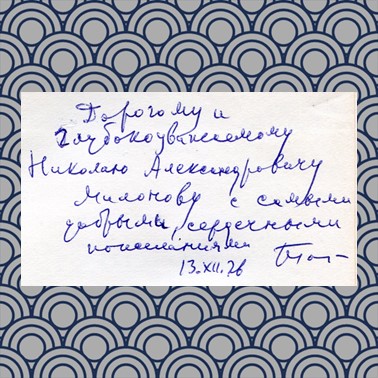 Дорогому и
глубокоуважаемому
Николаю Александровичу
Милонову с самыми
добрыми, сердечными
пожеланиями
13.XII.76